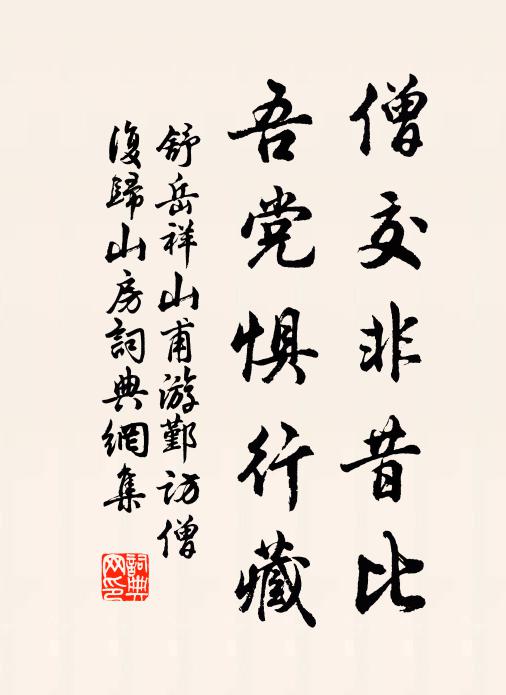 僧交非昔比
吾党惧行藏
舒岳祥山甫游鄞访僧
復歸山房詞典網集
詞典網印